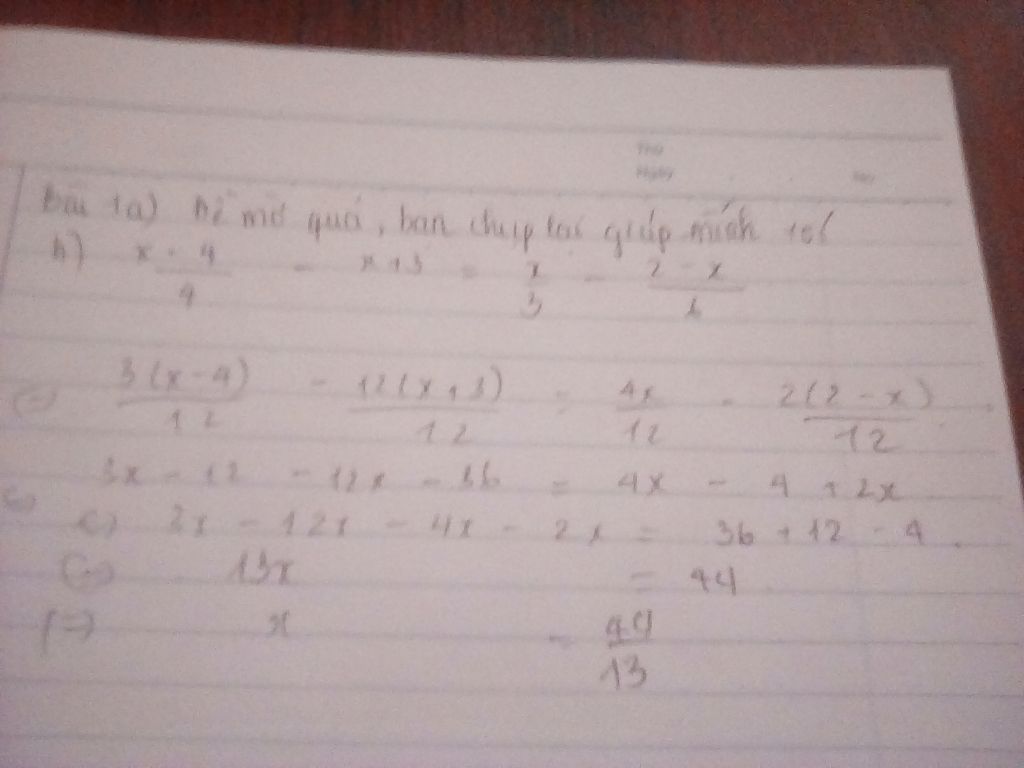 Thứ
Ngày No.
bài 1a) Đề mờ quá, bạn chụp lại giúp mình
b) x - 4 / 4 - x + 3 = x / 3 - 2 - x / 6
3(x - 4) / 12 - 12(x + 3) / 12 = 4x / 12 - 2(2 - x) / 12
3x - 12 - 12x - 36 = 4x - 4 + 2x
3x - 12x - 4x - 2x = 36 + 12 - 4
13x = 44
x = 44 / 13